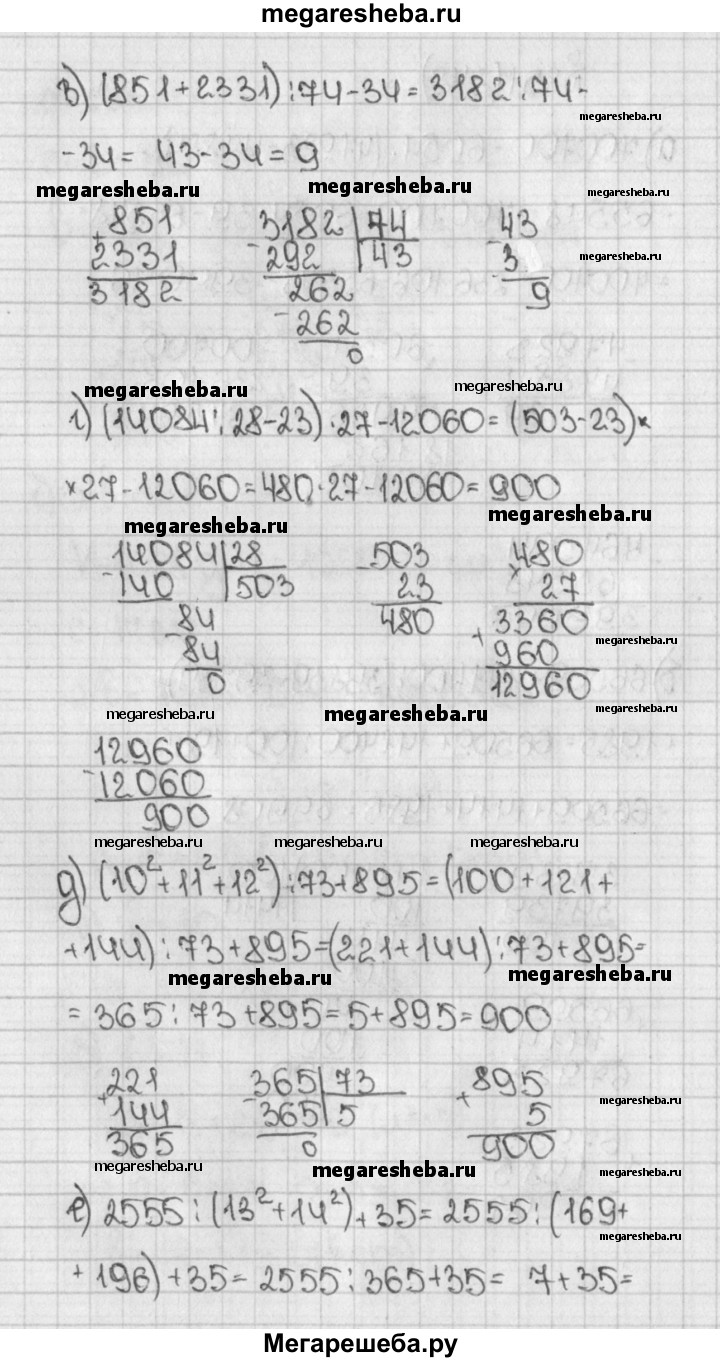 megaresheba.ru
в) (851+2331):74-34=3182:74-
megaresheba.ru
-34= 43-34=9
megaresheba.ru megaresheba.ru megaresheba.ru
+851 3182|74 -43
2331 -292 |43 3
megaresheba.ru
3182 262 9
-262
0
megaresheba.ru megaresheba.ru
г) (14084:28-23)·27-12060=(503-23)×
×27-12060=480·27-12060=900
megaresheba.ru megaresheba.ru
14084|28 -503 ×480
-140 |503 23 27
84 480 +3360
megaresheba.ru
-84 960
0 12960
megaresheba.ru megaresheba.ru megaresheba.ru
12960
-12060
900
megaresheba.ru megaresheba.ru megaresheba.ru megaresheba.ru
д) (10²+11²+12²):73+895=(100+121+
+144):73+895=(221+144):73+895=
megaresheba.ru megaresheba.ru
=365:73+895=5+895=900
+221 365|73 +895
144 -365|5 5
megaresheba.ru
365 0 900
megaresheba.ru megaresheba.ru megaresheba.ru
е) 2555:(13²+14²)+35=2555:(169+
megaresheba.ru
+196)+35=2555:365+35= 7+35=
Мегарешеба.ру